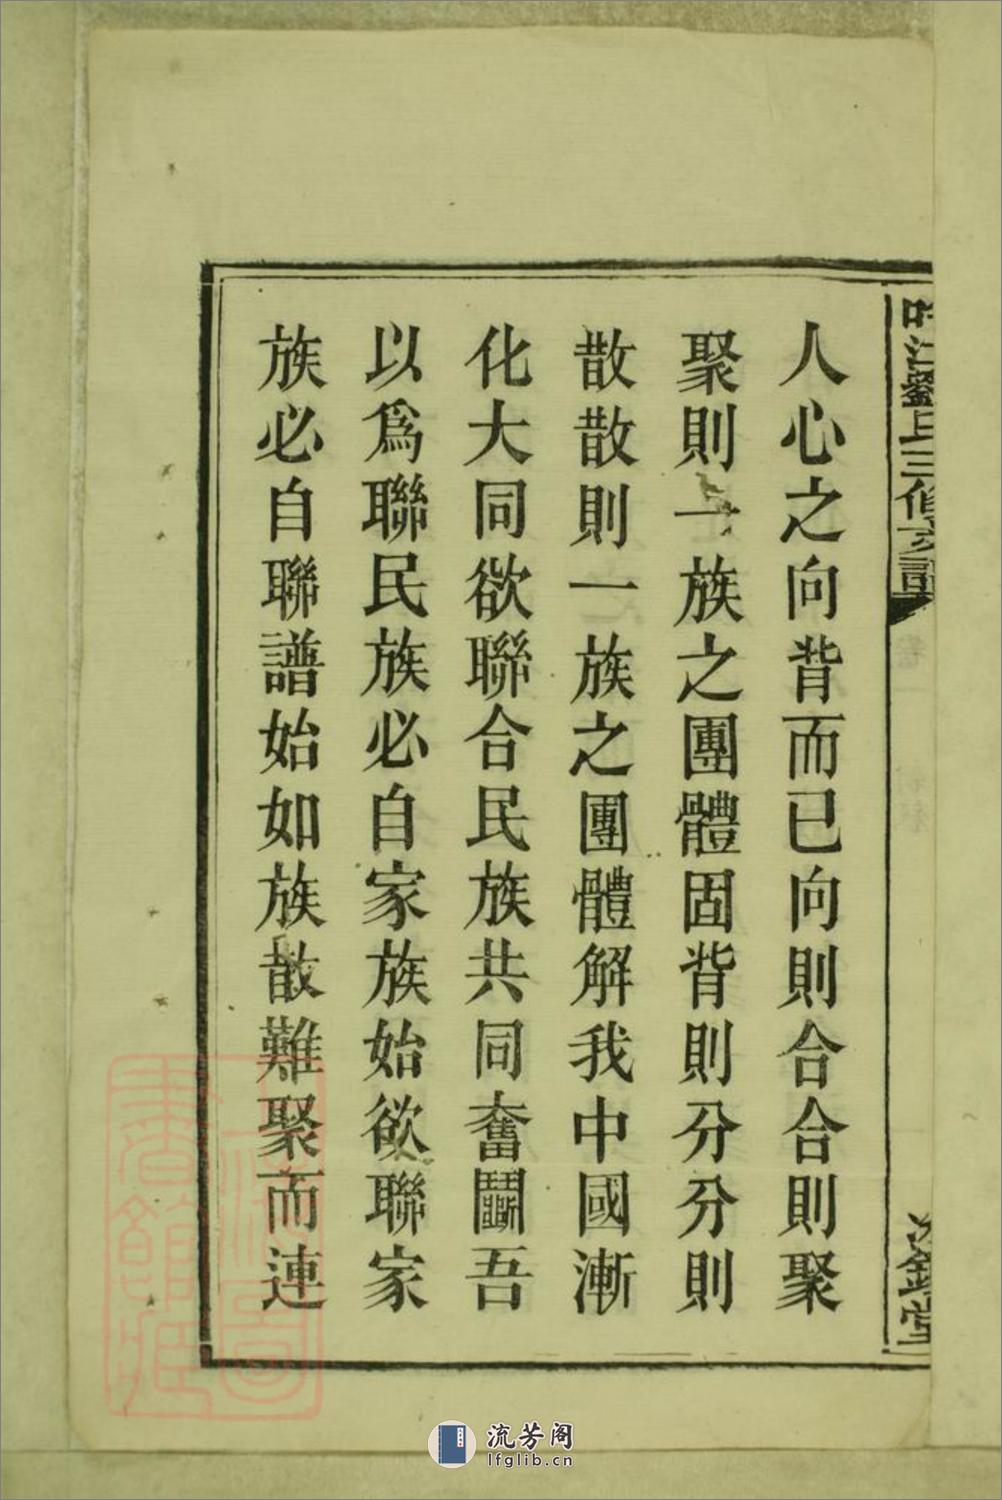 人心之向背而已向則合合則聚
聚則一族之團體固背則分分則
散散則一族之團體解我中國漸
化大同欲聯合民族共同奮鬭吾
以爲聯民族必自家族始欲聯家
族必自聯譜始如族散難聚而連
江劉氏三修支譜
堂
流芳阁
lfglib.cn